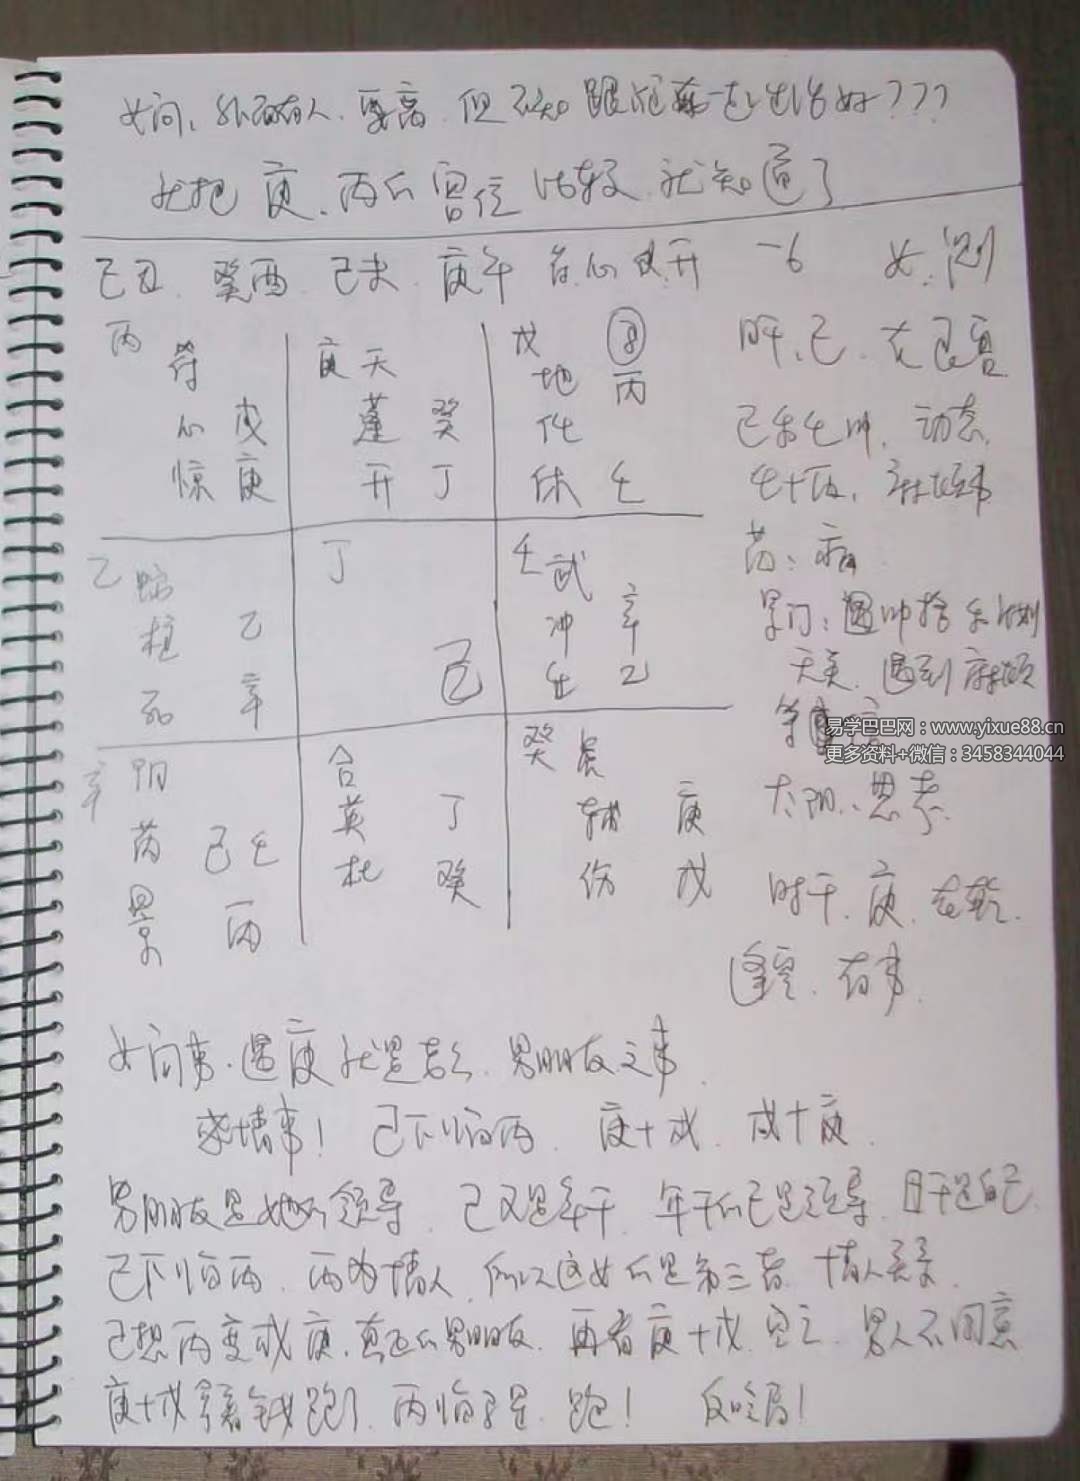 女问、外面有人、要离、但不知跟他在一起生活好???
我把 庚、丙的宫位 比较 就知道了
己丑、癸酉、己未、庚午 符心使开 -6 女测
丙 符 庚 天 戊 ⑧
地 丙
心 戊 蓬 癸 任
惊 庚 开 丁 休 壬
日干、己、在艮宫
己加壬 动态
己+丙
乙 蛇 丁 壬 武
柱 乙 冲 辛
死 辛 己 生 乙
芮:病
景门:
天芮、遇到麻烦
辛 阴 合 癸 虎
芮 己壬 英 丁 辅 庚
景 丙 杜 癸 伤 戊
易学巴巴网:www.yixue88.cn
更多资料+微信:3458344044
太阴、思考
时干、庚、在乾
逢空、有事
女问事、遇庚就是老公、男朋友之事
感情事! 己下临丙、庚+戊、戊+庚
男朋友是她的领导、己又是年干、年干的己是领导、日干是自己
己下临丙、丙为情人、所以这女的是第三者、情人关系
己想丙变成庚、真正的男朋友、再看庚+戊、空亡、男人不同意
庚+戊 拿着钱跑了、丙临 跑! 反吟局!